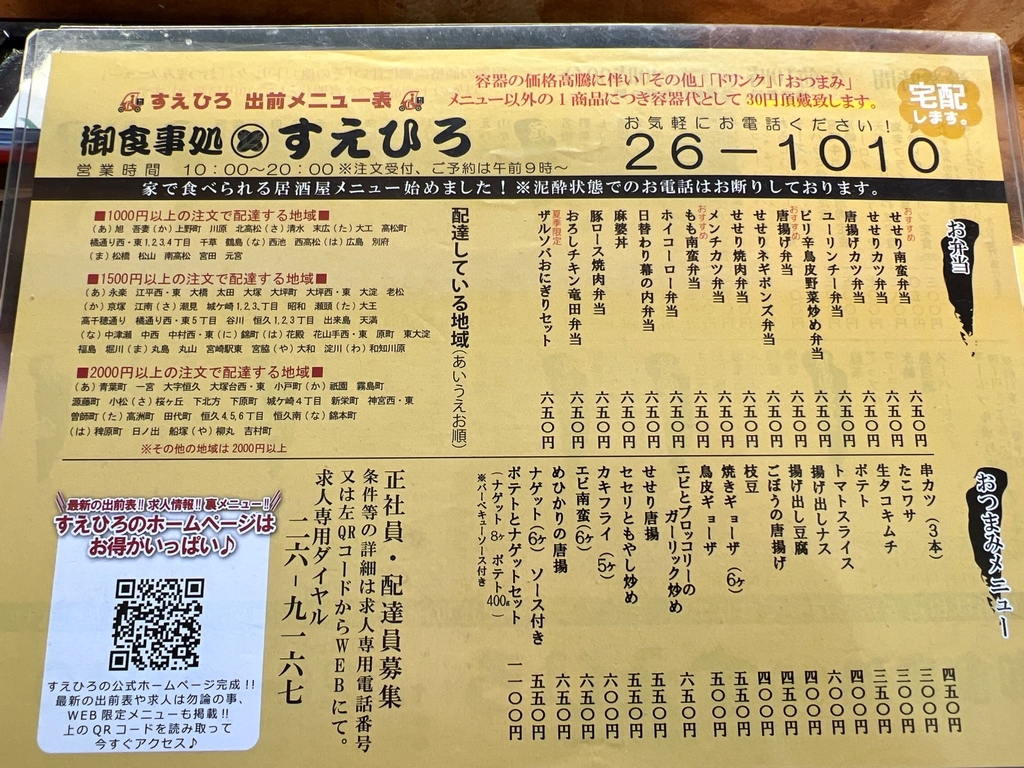 すえひろ 出前メニュー表
容器の価格高騰に伴い「その他」「ドリンク」「おつまみ」
メニュー以外の1商品につき容器代として30円頂戴致します。
宅配
します。
御食事処 すえひろ
お気軽にお電話ください!
26-1010
営業時間 10:00〜20:00※注文受付、ご予約は午前9時〜
家で食べられる居酒屋メニュー始めました!※泥酔状態でのお電話はお断りしております。
■1000円以上の注文で配達する地域■
(あ)旭 吾妻(か)上野町 川原 北高松(さ)清水 末広(た)大工 高松町
橘通り西・東1,2,3,4丁目 千草 鶴島(な)西池 西高松(は)広島 別府
(ま)松橋 松山 南高松 宮田 元宮
■1500円以上の注文で配達する地域■
(あ)永楽 江平西・東 大橋 太田 大塚 大坪町 大坪西・東 大淀 老松
(か)京塚 江南(さ)潮見 城ケ崎1,2,3,丁目 昭和 瀬頭(た)大王
高千穂通り 橘通り西・東5丁目 谷川 恒久1,2,3丁目 出来島 天満
(な)中津瀬 中西 中村西・東(に)錦町(は)花殿 花山手西・東 原町 東大淀
福島 堀川(ま)丸島 丸山 宮崎駅東 宮脇(や)大和 淀川(わ)和知川原
■2000円以上の注文で配達する地域■
(あ)青葉町 一宮 大字恒久 大塚台西・東 小戸町(か)祇園 霧島町
源藤町 小松(さ)桜ヶ丘 下北方 下原町 城ケ崎4丁目 新栄町 神宮西・東
曽師町(た)高洲町 田代町 恒久4,5,6丁目 恒久南(な)錦本町
(は)稗原町 日ノ出 船塚(や)柳丸 吉村町
※その他の地域は2000円以上
配達している地域(あいうえお順)
お弁当
おすすめ
せせり南蛮弁当 六五〇円
せせりカツ弁当 六五〇円
唐揚げカツ弁当 六五〇円
ユーリンチー弁当 六五〇円
ピリ辛鳥皮野菜炒め弁当 六五〇円
おすすめ
唐揚げ弁当 六五〇円
せせりネギポンズ弁当 六五〇円
せせり焼肉弁当 六五〇円
メンチカツ弁当 六五〇円
おすすめ
もも南蛮弁当 六五〇円
ホイコーロー弁当 六五〇円
日替わり幕の内弁当 六五〇円
麻婆丼 六五〇円
豚ロース焼肉弁当 六五〇円
おろしチキン竜田弁当 六五〇円
夏季限定
ザルソバおにぎりセット 六五〇円
おつまみメニュー
串カツ(3本) 四五〇円
たこワサ 三〇〇円
生タコキムチ 三〇〇円
ポテト 三五〇円
トマトスライス 四〇〇円
揚げ出しナス 六〇〇円
揚げ出し豆腐 四〇〇円
ごぼうの唐揚げ 四五〇円
枝豆 四〇〇円
焼きギョーザ(6ヶ) 五五〇円
鳥皮ギョーザ 五〇〇円
エビとブロッコリーの
ガーリック炒め 六五〇円
せせり唐揚 五五〇円
セセリともやし炒め 五五〇円
カキフライ(5ヶ) 六〇〇円
エビ南蛮(6ヶ) 六五〇円
めひかりの唐揚 六五〇円
ナゲット(6ヶ)ソース付き 五五〇円
ポテトとナゲットセット 一一〇〇円
(ナゲット8ヶ ポテト400g)
※バーベキューソース付き
正社員・配達員募集
条件等の詳細は求人専用電話番号
又は左QRコードからWEBにて。
求人専用ダイヤル
二六-九一六七
最新の出前表!!求人情報!!裏メニュー!!
すえひろのホームページは
お得がいっぱい♪
すえひろの公式ホームページ完成!!
最新の出前表や求人は勿論の事、
WEB限定メニューも掲載!!
上のQRコードを読み取って
今すぐアクセス♪